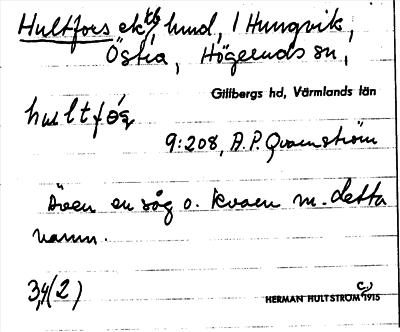 Hultfors ek^tb, hmd, i Hungvik,
Östra, Högeruds sn,
Gillbergs hd, Värmlands län
hultfóṣ
9:208, A.P. Qvarnström
Även en såg o. kvarn m. detta
namn.
3,4(2)
HERMAN HULTSTRÖM 1915